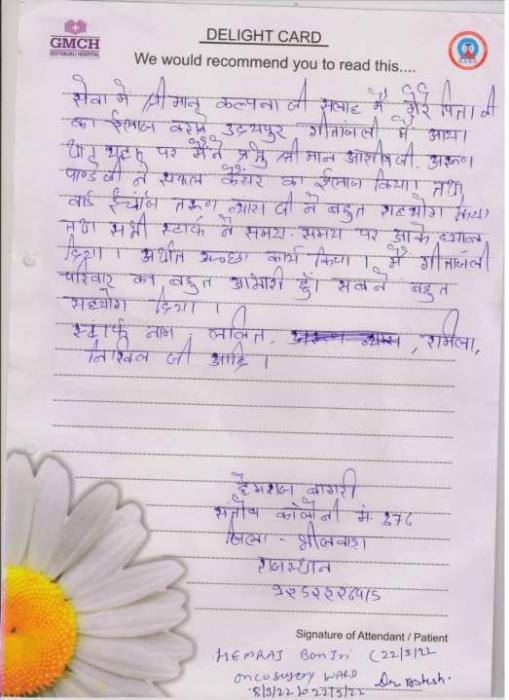 GMCH
GEETANJALI HOSPITAL
DELIGHT CARD
We would recommend you to read this....
सेवा में श्रीमान् कल्पना जी सलाह में मेरे पिता जी
का ईलाज कराने उदयपुर गीतांजली में आया
था। यहाँ पर मैंने श्रीमान आशीष जी, अरूण
पाण्डे जी ने सफल कैंसर का ईलाज किया। तथा
वार्ड ईंचार्ज तरूण व्यास जी ने बहुत सहयोग किया
तथा सभी स्टाफ ने समय-समय पर आके ध्यान
दिया। अर्थात अच्छा कार्य किया। मैं गीतांजली
परिवार का बहुत आभारी हूँ। सबने बहुत
सहयोग दिया।
स्टाफ नाम - ललित, शर्मिला,
निखिल जी आदि।
हेमराज बागरी
संतोष कॉलोनी मं. 376
जिला - भीलवाड़ा
राजस्थान
Signature of Attendant / Patient
HEMRAJ (22/3/22
oncosurgery WARD Dr. Ashish.
8/3/22 to 22/3/22